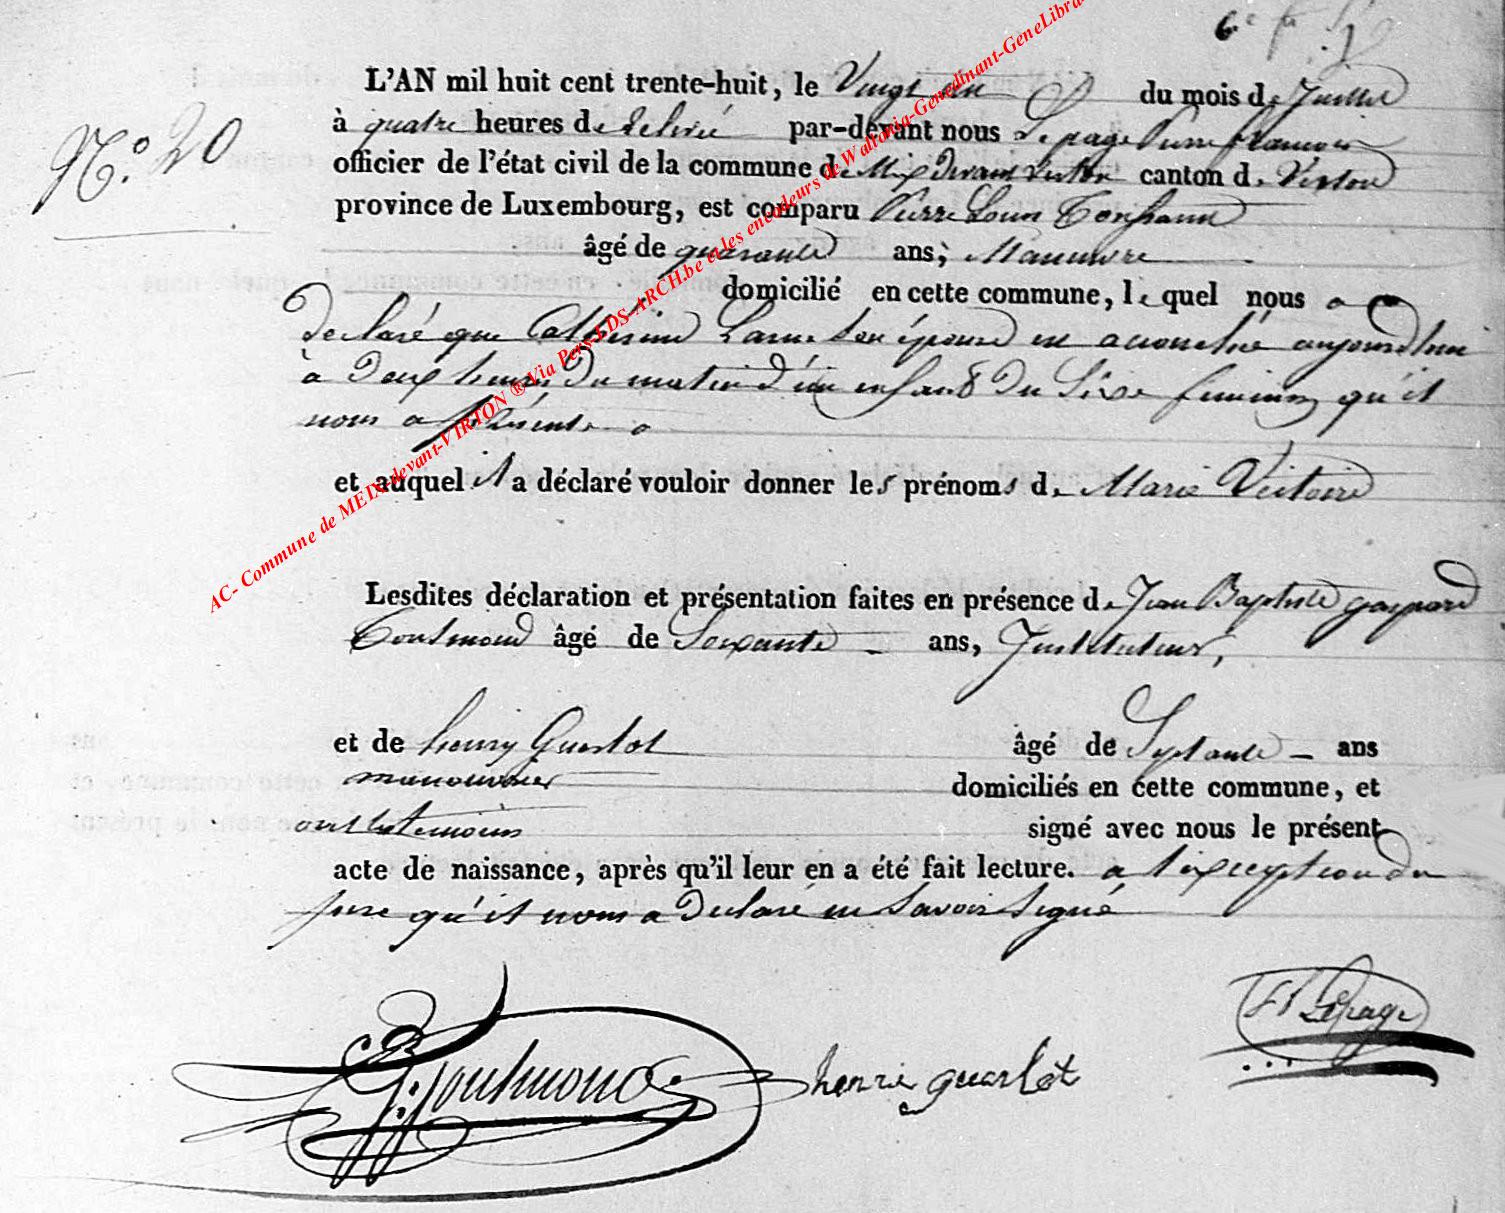 N.° 20
L'AN mil huit cent trente-huit, le Vingt un du mois de Juillet
à quatre heures de relevé par-devant nous Lepage Pierre francois
officier de l'état civil de la commune de Meix Devant Virton canton de Virton
province de Luxembourg, est comparu Pierre Louis
âgé de quarante ans, Manuvre
domicilié en cette commune, lequel nous a
declaré que Catherine son épouse est accouchée aujourdhui
à Deux heures Du matin d'un enfant Du Sexe feminin qu'il
nous a présenté
et auquel il a déclaré vouloir donner les prénoms de Marie Victoire
Lesdites déclaration et présentation faites en présence de Jean Baptiste gaspard
Toulmond âgé de Soixante ans, Instituteur,
et de henry Guerlot âgé de Septante ans
manouvrier domiciliés en cette commune, et
ont les temoins signé avec nous le présent
acte de naissance, après qu'il leur en a été fait lecture. a l'exception du
pere qu'il nous a Declaré ne Savoir Signé
Toulmond henri guerlot Lepage
AC- Commune de MEIX-devant-VIRTON ® Via Pers-LDS-ARCH.be et les encodeurs de Wallonia-Genedinant-GeneLibra